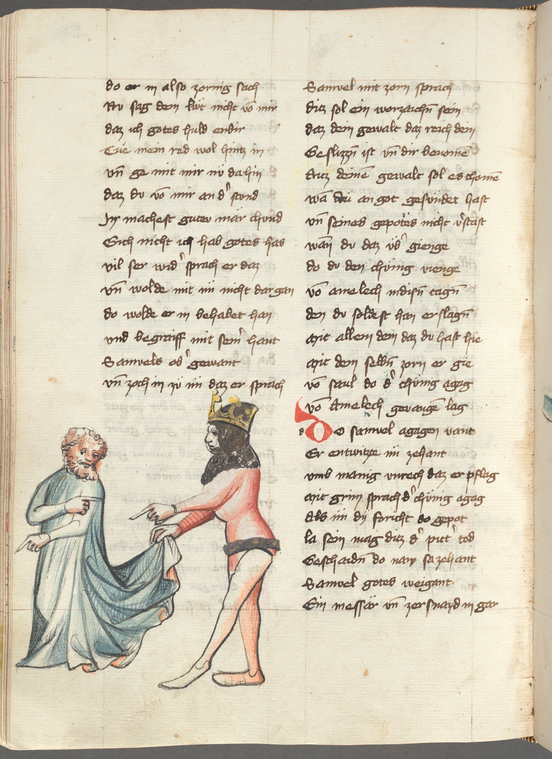 do er in also zornig sach
Nv sag den lvt nicht vō mir
daz ich gotes huld enbir
Tue mein red wol hintz in
vn̄ ge mit mir nv da hin
daz dv vō mir an dˀ stvnd
In machest gutev mar chvnd
Sich nicht ich hab gotes has
vil ser widˀ sprach er daz
vn̄ wolde mit im nicht dar gan
do wolde er in behabet han
vnd begraiff mit seinˀ hant
Samvels obˀ gewant
vn̄ zoch in zv im daz er sprach
Samvel mit zorn sprach
ditz sol ein worzaichn̄ sein
daz dein gewalt daz reich dein
Geslizzn̄ ist vn̄ dir benomē
Ditz deinē gewalt sol es chomē
wa dv an got gesundet hast
vn̄ seines gepotes nicht
wan̄ dv daz vbˀ gienge
do dv den chvnig vienge
vō amelech in disn̄ tagn̄
den dv soldest han erslagn̄
Mit allem dem daz dv hast hie
Mit dem selbn̄ zorn er gie
vō saul do dˀ chvnig agag
vō Amelech gevangē lag
Do samvel agagen vant
Er entwitze im zehant
vmb manig vnrech daz er pflag
Mit grim sprach dˀ chvnig agag
Als im div foricht do gepot
la sein mag ditz dˀ pittˀ tod
Geschaidn̄ do nam sa zehant
Samvel gotes weigant
Ein messār vn̄ zersnaid in gar